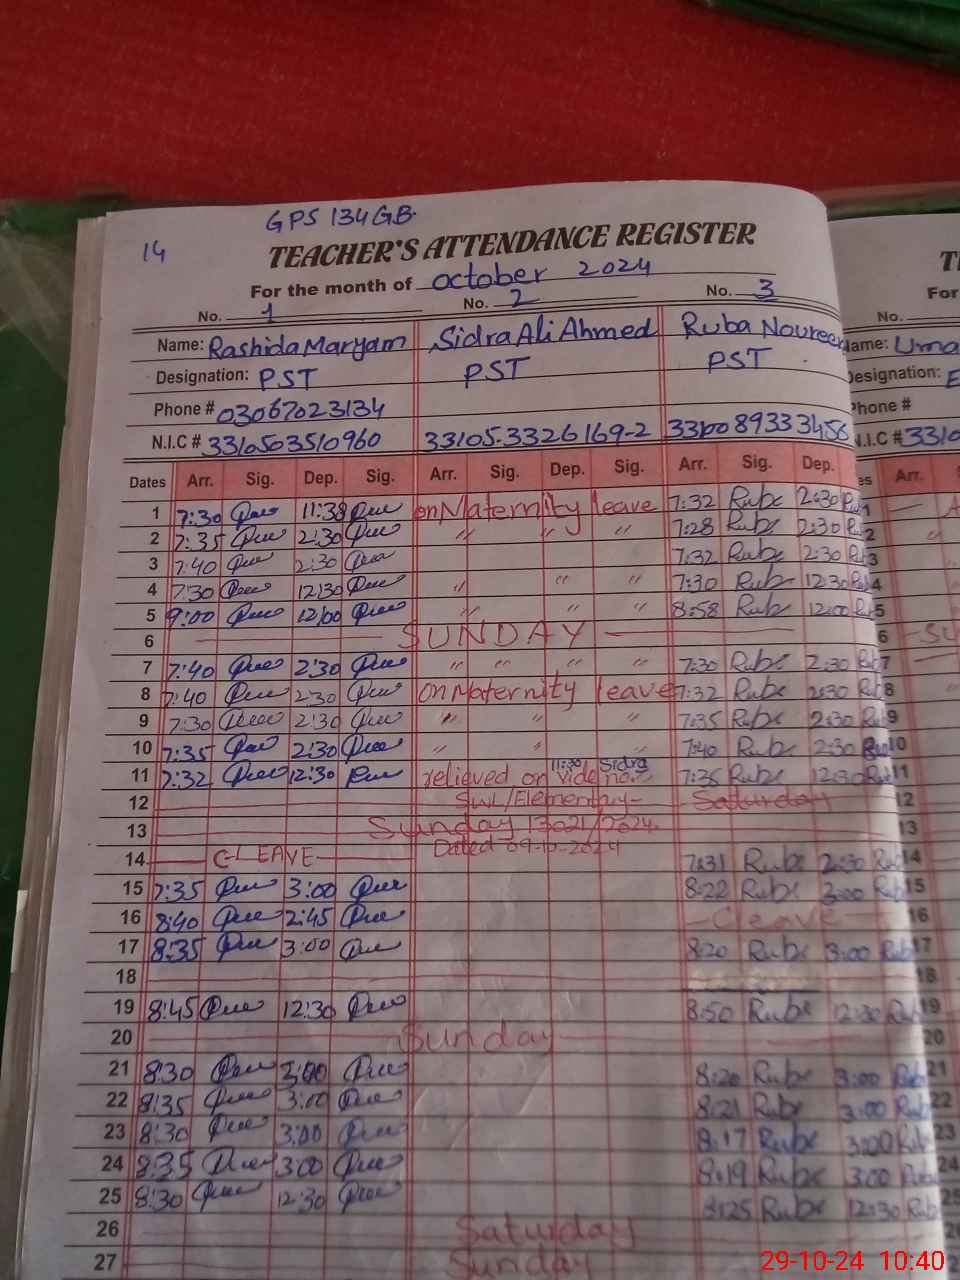 GPS 134 GB.
14
TEACHER'S ATTENDANCE REGISTER
For the month of October 2024
No. 1 No. 2 No. 3
Name: Rashida Maryam Sidra Ali Ahmed Ruba Noureen
Designation: PST PST PST
Phone # 03067023134
N.I.C # 3310503510960 33105-3326169-2 33100 8933 3456
Dates Arr. Sig. Dep. Sig. Arr. Sig. Dep. Sig. Arr. Sig. Dep.
1 7:30 11:38 on Maternity leave 7:32 Rubs 2:30
2 7:35 2:30 " " " 7:28 Rubs 2:30
3 7:40 2:30 7:32 Rubs 2:30
4 7:30 12:30 " " " 7:30 Rubs 12:30
5 9:00 12:00 " " " 8:58 Rubs 12:00
6 SUNDAY
7 7:40 2:30 " " " " 7:30 Rubs 2:30
8 7:40 2:30 on Maternity leave 7:32 Rubs 2:30
9 7:30 2:30 " " " 7:35 Rubs 2:30
10 7:35 2:30 " " " 7:40 Rubs 2:30
11:30 Sidra
11 7:32 12:30 relieved on vide no. 7:36 Rubs 12:30
12 SWL/Elementary- Saturday
13 Sunday 13021/2024.
Dated 09-10-2024
14 C-LEAVE 7:31 Rubs 2:30
15 7:35 3:00 8:22 Rubs 3:00
16 8:40 2:45 C leave
17 8:35 3:00 8:20 Rubs 3:00
18
19 8:45 12:30 8:50 Rubs 12:30
20 Sunday
21 8:30 3:00 8:20 Rubs 3:00
22 8:35 3:00 8:21 Rubs 3:00
23 8:30 3:00 8:17 Rubs 3:00
24 8:35 3:00 8:19 Rubs 3:00
25 8:30 12:30 8:25 Rubs 12:30
26 Saturday
27 Sunday
For
No.
Name: Uma
Designation: E
Phone #
N.I.C # 3310
Arr.
29-10-24 10:40